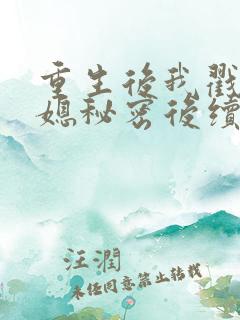 重生後我戳
媳秘密後續
汪潤
未经同意禁止转载